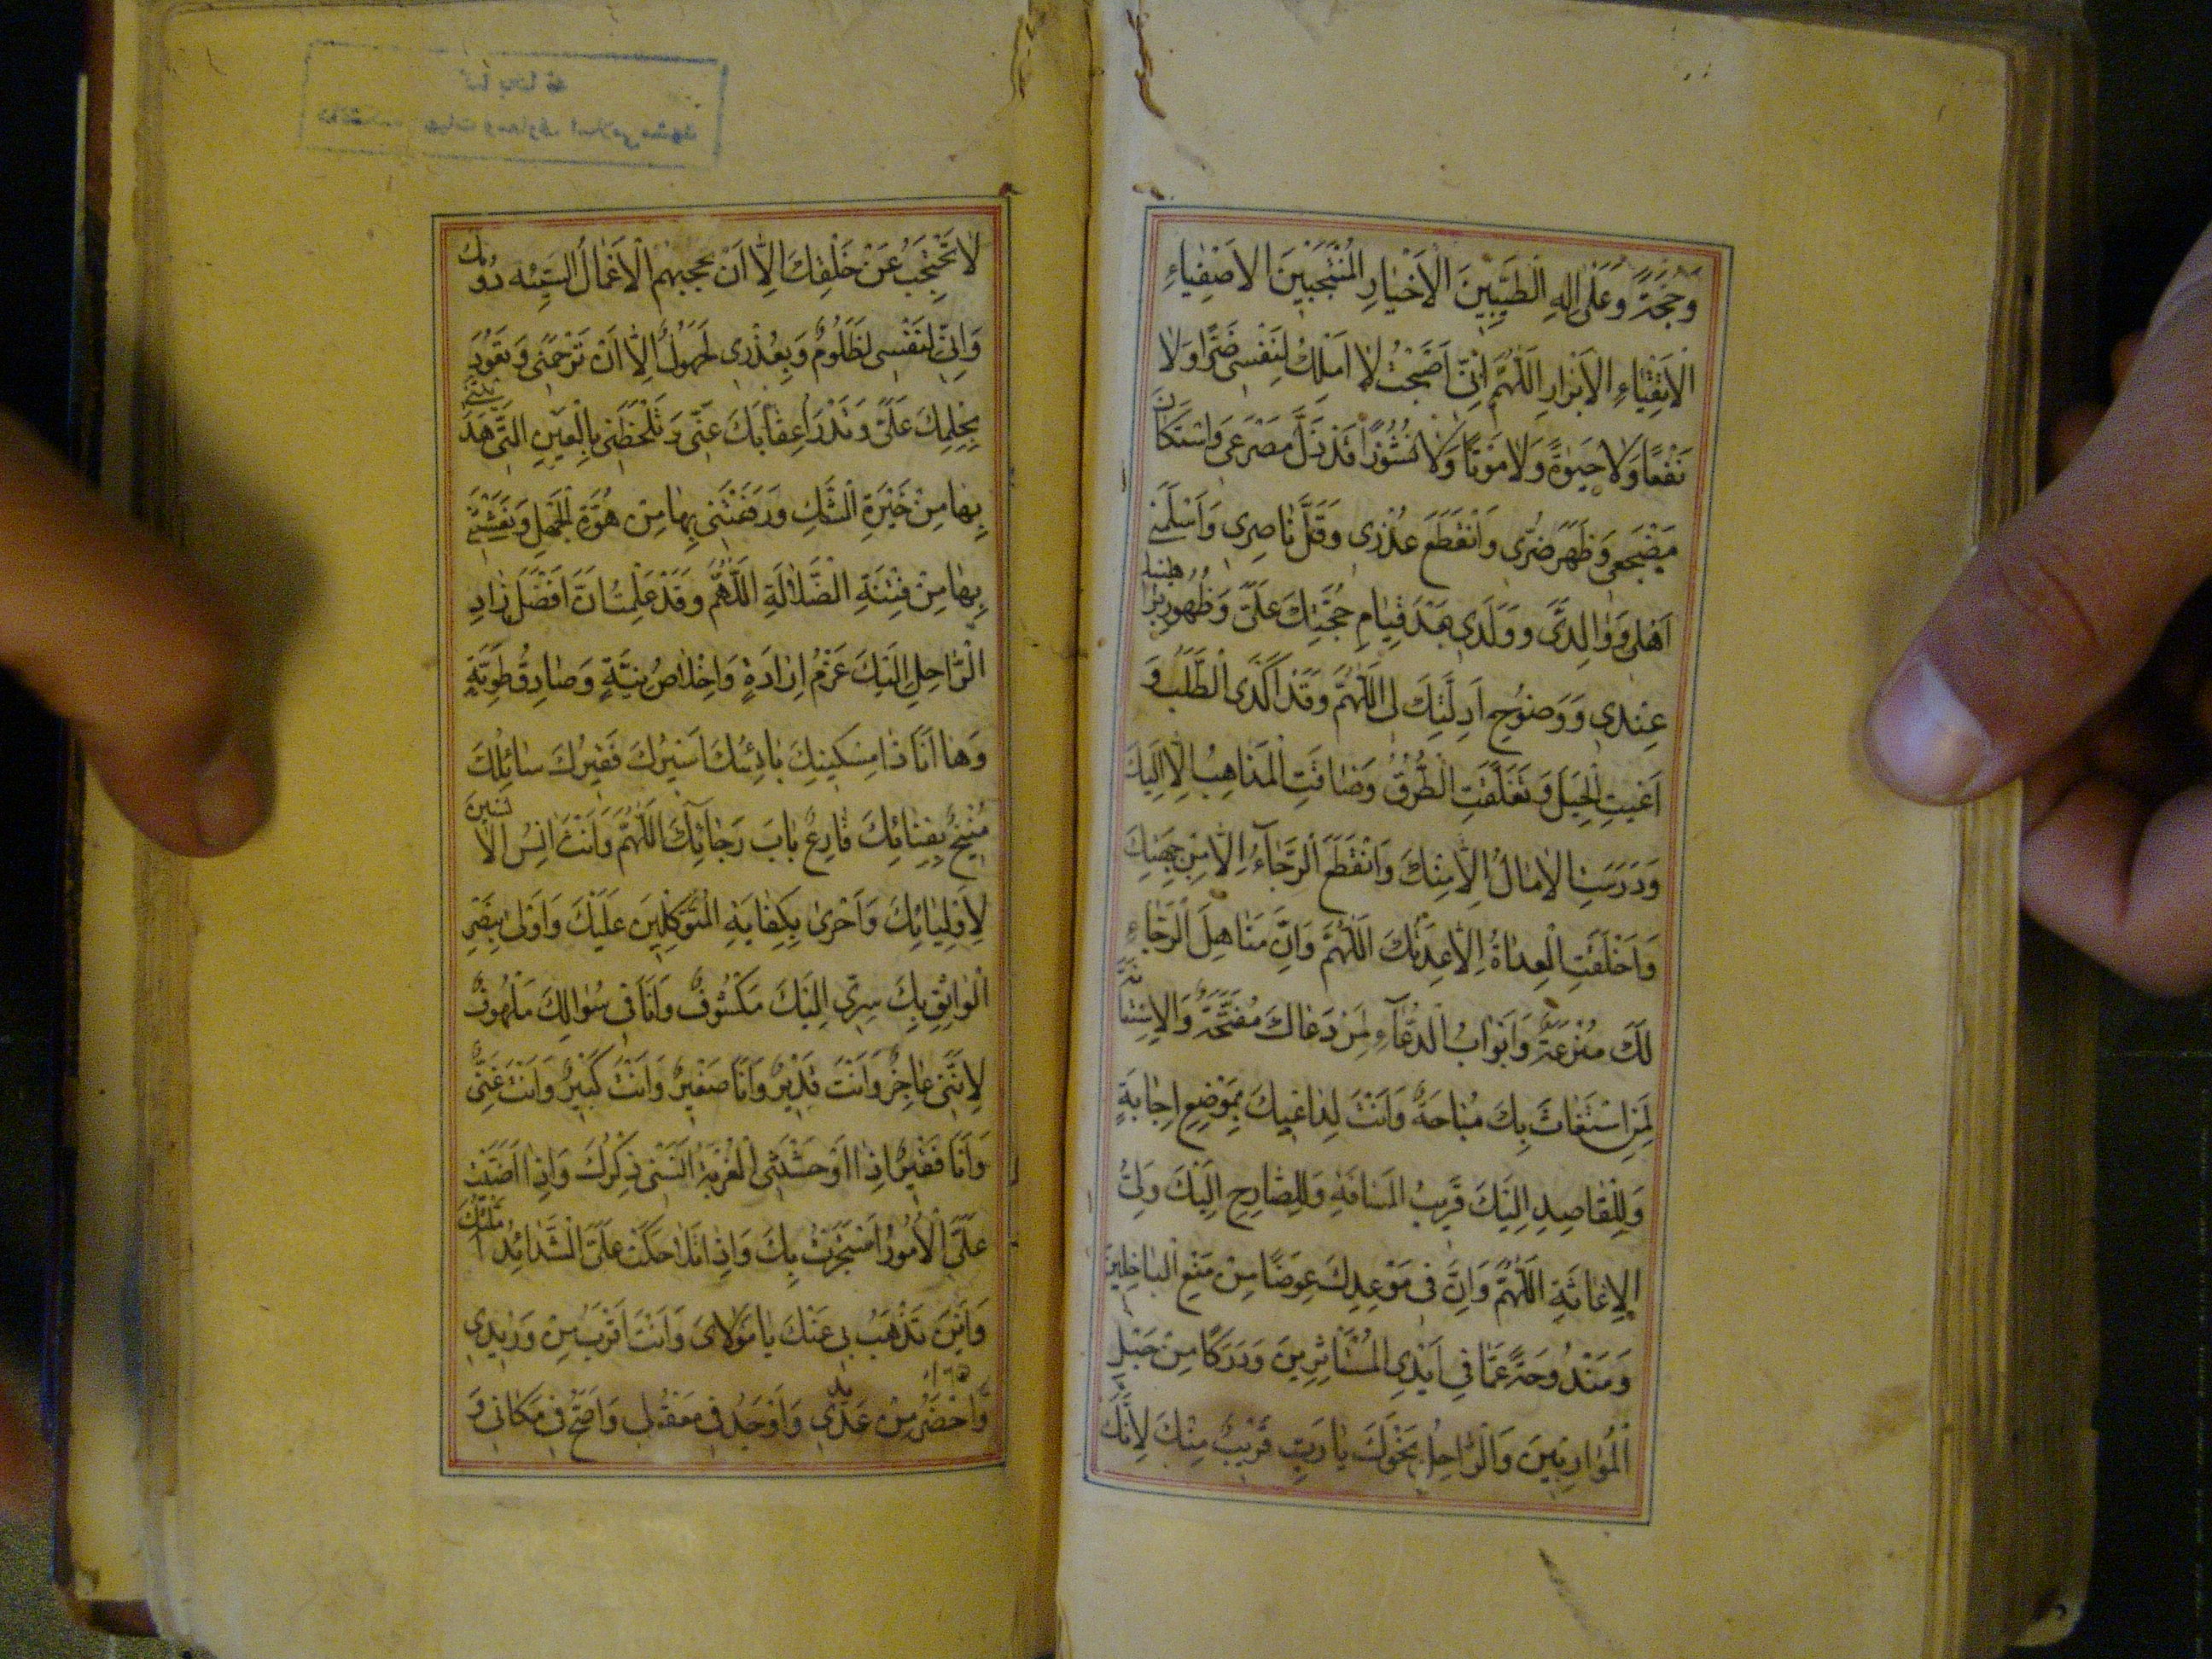 وَحُجَّةً وَعَلَى الِهِ الطَّيِّبِينَ الْاَخْيَارِ الْمُنْتَجَبِينَ الاَصْفِيَاءِ
الْاَتْقِيَاءِ الاَبْرَارِ اَللّٰهُمَّ اِنّى اَصْبَحْتُ لا اَمْلِكُ لِنَفْسى ضَرًّا وَلا
نَفْعًا وَلا حَيٰوةً وَلا مَوْتًا وَلا نُشُوْرًا قَدْ ذَلَّ مَصْرَعى وَاسْتَكانَ
مَضْجَعى وَظَهَرَ ضُرّى وَانْقَطَعَ عُذْرى وَقَلَّ نَاصِرى وَاَسْلَمَنى
اَهْلى وَوالِدَىَّ وَوَلَدى بَعْدَ قِيامِ حُجَّتِكَ عَلَىَّ وَظُهُورِ بَراهينِكَ
عِنْدى وَوَضُوحِ اَدِلَّتِكَ لى اَللّٰهُمَّ وَقَدْ اَكْدَى الطَّلَبُ وَ
اَعْيَتِ الْحِيَلُ وَتَغَلَّقَتِ الطُّرُقُ وَضاقَتِ الْمَذاهِبُ اِلّا اِلَيْكَ
وَدَرَسَتِ الاٰمالُ اِلّا مِنْكَ وَانْقَطَعَ الرَّجآءُ اِلّا مِنْ جِهَتِكَ
وَاَخْلَفَتِ الْعِداةُ اِلّا عِدَتُكَ اَللّٰهُمَّ وَاِنَّ مَناهِلَ الرَّجاءِ
لَكَ مُتْرَعَةٌ وَاَبْوابُ الدُّعآءِ لِمَنْ دَعاكَ مُفَتَّحَةٌ وَالاِسْتِغاثَةَ
لِمَنِ اسْتَغاثَ بِكَ مُباحَةٌ وَاَنْتَ لِداعيكَ بِمَوْضِعِ اِجابَةٍ
وَلِلْقاصِدِ اِلَيْكَ قَريبُ الْمَسافَةِ وَلِلصّارِخِ اِلَيْكَ وَلِىُّ
الاِغاثَةِ اَللّٰهُمَّ وَاِنَّ فى مَوْعِدِكَ عِوَضًا مِنْ مَنْعِ الْباخِلينَ
وَمَنْدُوحَةً عَمّا فى اَيْدِى الْمُسْتَأْثِرينَ وَدَرَكًا مِنْ حَبْلِ
الْمُوارِبينَ وَالرّاحِلُ نَحْوَكَ يا رَبِّ قَريبٌ مِنْكَ لِاَنَّكَ
لا تَحْتَجِبُ عَنْ خَلْقِكَ اِلّا اَنْ يَحْجُبَهُمُ الْاَعْمالُ السَّيِّئَه دُونَكَ
وَاِنّى لِنَفْسى لَظَلُومٌ وَبِعُذْرى لَجَهُولٌ اِلّا اَنْ تَرْحَمَنى وَتَعُودَ
بِحِلْمِكَ عَلَىَّ وَتَدْرَاَ عِقابَكَ عَنّى وَتَلْحَظَنى بِالْعَيْنِ الَّتى هَدَيْتَنى
بِها مِنْ حَيْرَةِ الشَّكِّ وَرَفَعْتَنى بِها مِنْ هُوَّةِ الْجَهْلِ وَنَعَشْتَنى
بِها مِنْ فِتْنَةِ الضَّلالَةِ اَللّٰهُمَّ وَقَدْ عَلِمْتُ اَنَّ اَفْضَلَ زادِ
الرّاحِلِ اِلَيْكَ عَزْمُ اِرادَةٍ وَاِخْلاصُ نِيَّةٍ وَصادِقُ طَوِيَّةٍ
وَها اَنَا ذا مِسْكينُكَ بائِسُكَ اَسيرُكَ فَقيرُكَ سائِلُكَ
مُنيخٌ بِفِنائِكَ قارِعٌ بابَ رَجآئِكَ اَللّٰهُمَّ وَاَنْتَ انَسُ الاٰنِسينَ
لِاَوْلِيائِكَ وَاَحْرى بِكِفايَةِ الْمُتَوَكِّلينَ عَلَيْكَ وَاَوْلى بِنَصْرِ
الْواثِقِ بِكَ سِرّى اِلَيْكَ مَكْشُوفٌ وَاَنَا فى سُؤالِكَ مَلْهُوفٌ
لِاَنَّنى عاجِزٌ وَاَنْتَ قَديرٌ وَاَنَا صَغيرٌ وَاَنْتَ كَبيرٌ وَاَنْتَ غَنِىٌّ
وَاَنَا فَقيرٌ اِذا اَوْحَشَتْنى الْغُرْبَةُ انَسَنى ذِكْرُكَ وَاِذا اَصَبَّتْ
عَلَىَّ الْاُمُورُ اسْتَجَرْتُ بِكَ وَاِذا تَلاحَكَتْ عَلَىَّ الشَّدائِدُ اَمَّلْتُكَ
وَاَيْنَ تَذْهَبُ بى عَنْكَ يا مَوْلاىَ وَاَنْتَ اَقْرَبُ مِنْ وَريدى
وَاَحْضَرُ مِنْ عَدَدى وَاَوْجَدُ فى مَعْقُولى وَاَصَحُّ فى مَكانى وَ